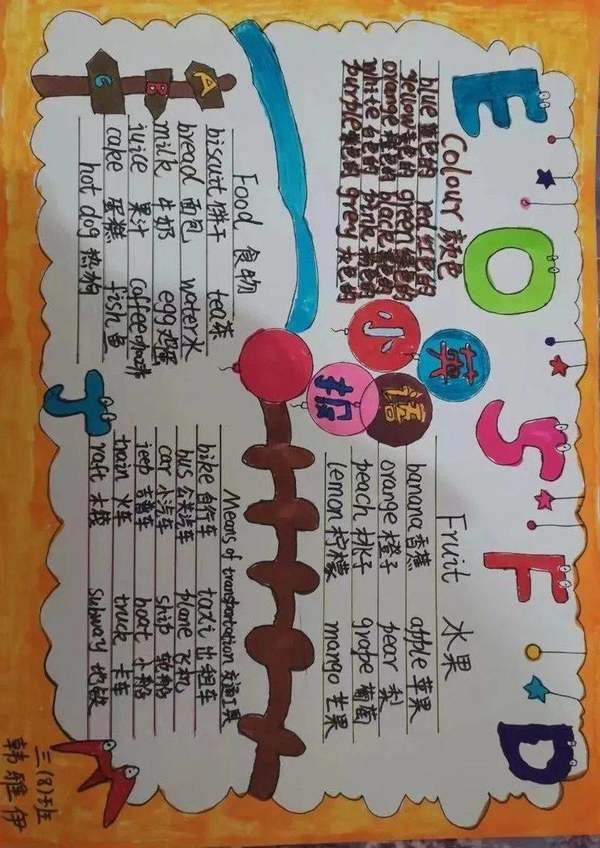 E O S F D
英语
小报
Colour 颜色
blue 蓝色的 red 红色的
yellow 黄色的 green 绿色的
orange 橙色的 black 黑色的
white 白色的 pink 粉色的
purple 紫色的 grey 灰色的
Fruit 水果
banana 香蕉 apple 苹果
orange 橙子 pear 梨
peach 桃子 grape 葡萄
lemon 柠檬 mango 芒果
A
B
Food 食物
biscuit 饼干 tea 茶
bread 面包 water 水
milk 牛奶 egg 鸡蛋
juice 果汁 coffee 咖啡
cake 蛋糕 fish 鱼
hot dog 热狗
Means of transportation 交通工具
bike 自行车 taxi 出租车
bus 公共汽车 plane 飞机
car 小汽车 ship 轮船
jeep 吉普车 boat 小船
train 火车 truck 卡车
raft 木筏 subway 地铁
三(8)班
韩雅伊